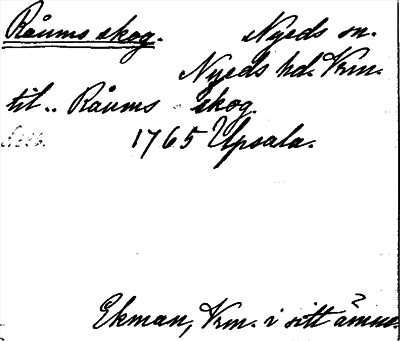 Råums skog. Nyeds sn.
Nyeds hd. Vrm.
til.. Råums skog
1765 Upsala.
Ekman, Vrm. i sitt ämne.